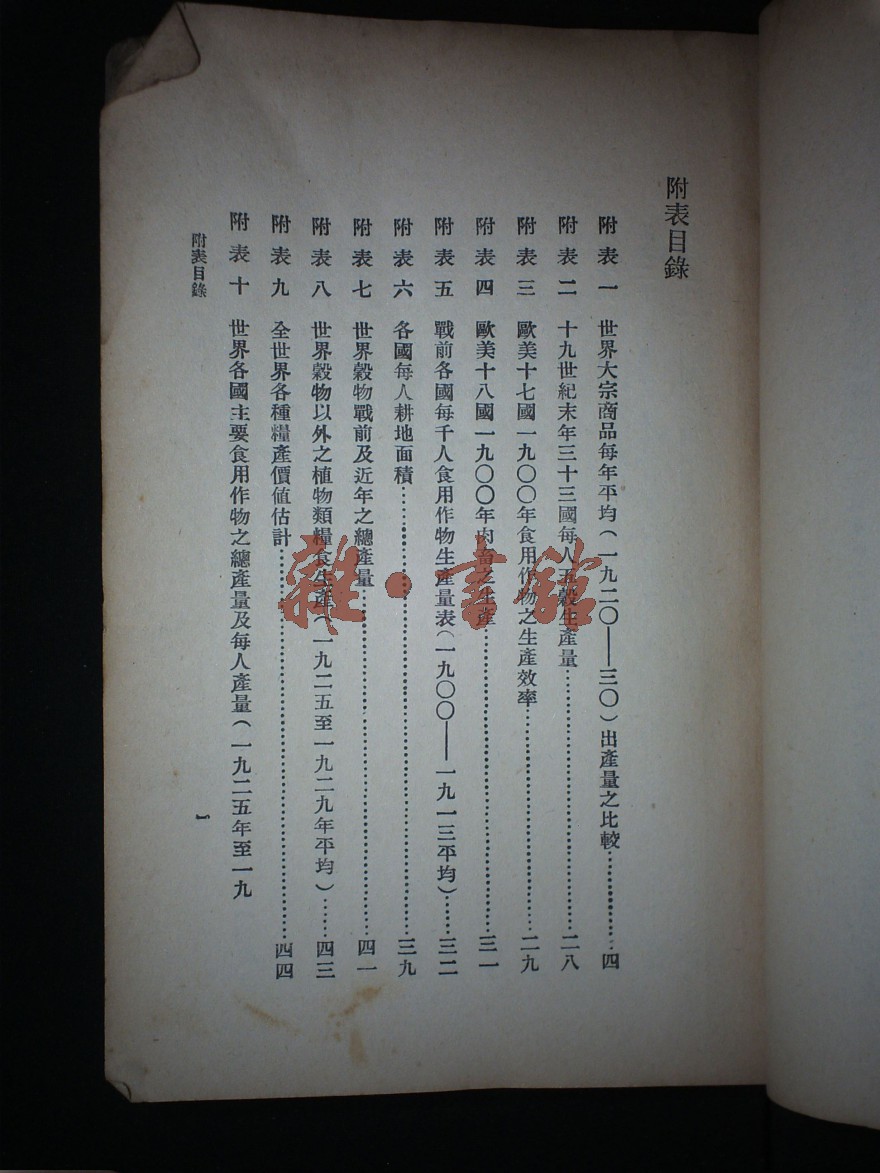 附表目錄
附表一 世界大宗商品每年平均（一九二〇——三〇）出產量之比較……………四
附表二 十九世紀末年三十三國每人五穀生產量……………二八
附表三 歐美十七國一九〇〇年食用作物之生產效率……………二九
附表四 歐美十八國一九〇〇年肉畜之生產……………三一
附表五 戰前各國每千人食用作物生產量表（一九〇〇——一九一三平均）……三二
附表六 各國每人耕地面積……………三九
附表七 世界穀物戰前及近年之總產量……………四一
附表八 世界穀物以外之植物類糧食生產（一九二五至一九二九年平均）……四三
附表九 全世界各種糧產價值估計……………四四
附表十 世界各國主要食用作物之總產量及每人產量（一九二五年至一九
附表目錄
一
雜·書館